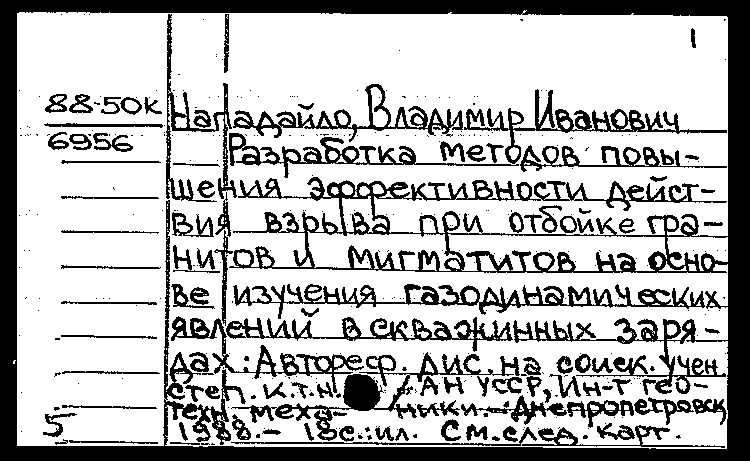 1
88-50к Нападайло, Владимир Иванович
6956 Разработка методов повы-
шения эффективности дейст-
вия взрыва при отбойке гра-
нитов и мигматитов на осно-
ве изучения газодинамических
явлений в скважинных заря-
дах: Автореф. дис. на соиск. учен
степ. к.т.н. / АН УССР, Ин-т гео-
техн. меха- ники.-:Днепропетровск
5 1988.- 18с.:ил. См.след.карт.